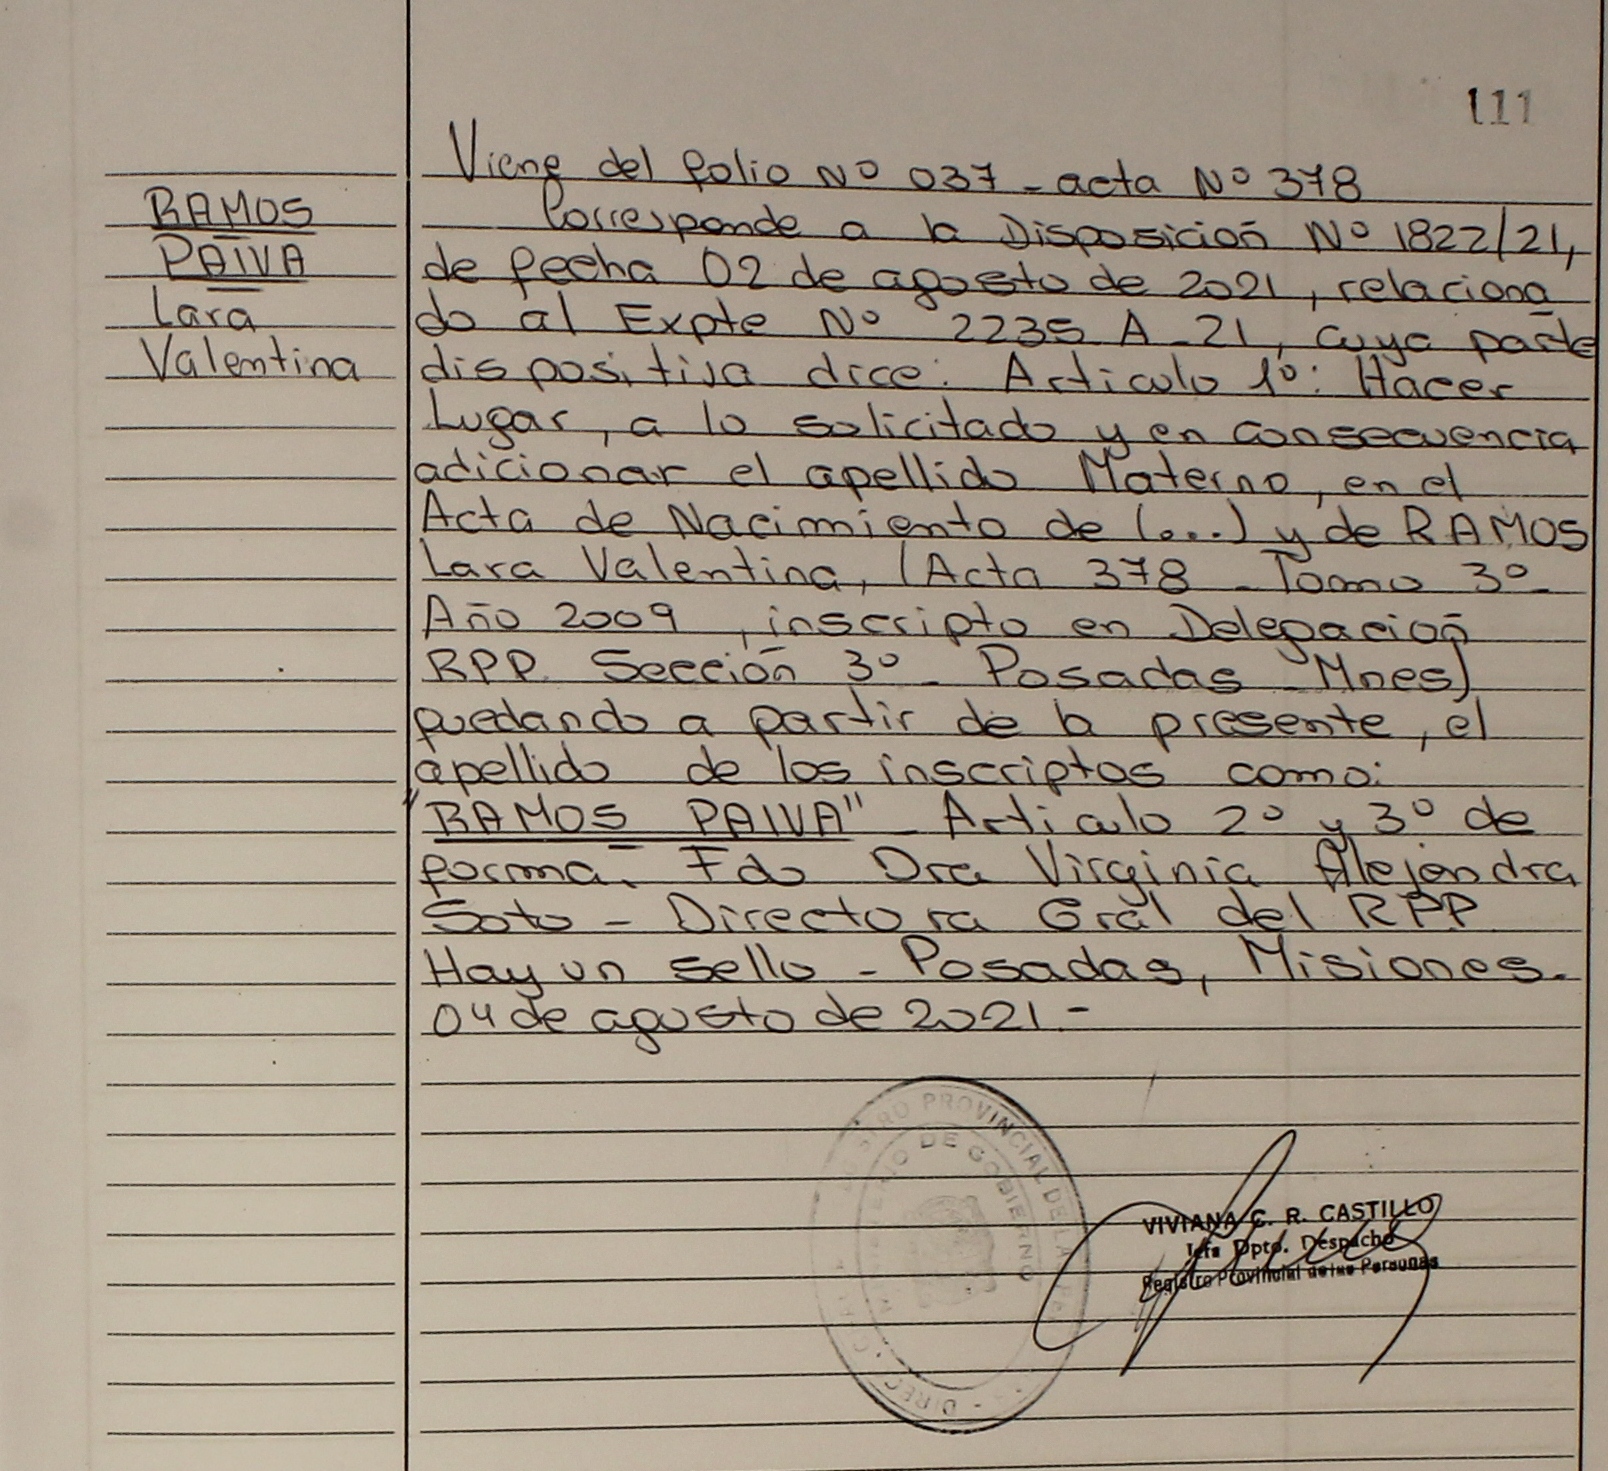 111
RAMOS
PAIVA
Lara
Valentina
Viene del folio Nº 037 - acta Nº 378
Corresponde a la Disposición Nº 1822/21,
de fecha 02 de agosto de 2021, relaciona
do al Expte Nº 2235 A - 21, cuya parte
dispositiva dice: Articulo 1º: Hacer
Lugar, a lo solicitado y en consecuencia
adicionar el apellido Materno, en el
Acta de Nacimiento de (...) y de RAMOS
Lara Valentina, (Acta 378 - Tomo 3º -
Año 2009, inscripto en Delegación
RPP. Sección 3º - Posadas - Mnes)
quedando a partir de la presente, el
apellido de los inscriptos como:
"RAMOS PAIVA" - Articulo 2º y 3º de
forma.- Fdo Dra Virginia Alejandra
Soto - Directora Gral del RPP
Hay un sello - Posadas, Misiones.
04 de agosto de 2021 -
PROVINCIAL DE LA
DE GOBIERNO
VIVIANA C. R. CASTILLO
Jefa Dpto. Despacho
Registro Provincial de las Personas